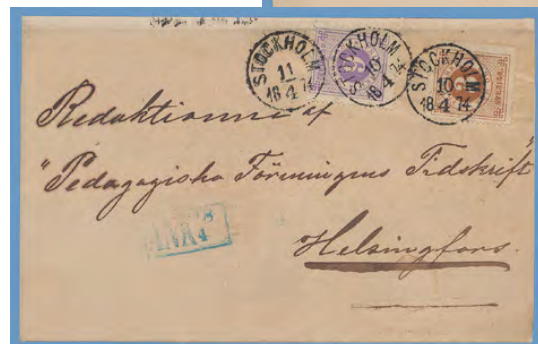 STOCKHOLM
11
18 4 74
STOCKHOLM
10
18 4 74
STOCKHOLM
10
18 4 74
Redaktionne af
"Pedagogiska Föreningens Tidskrift"
Helsingfors.
ANK
4